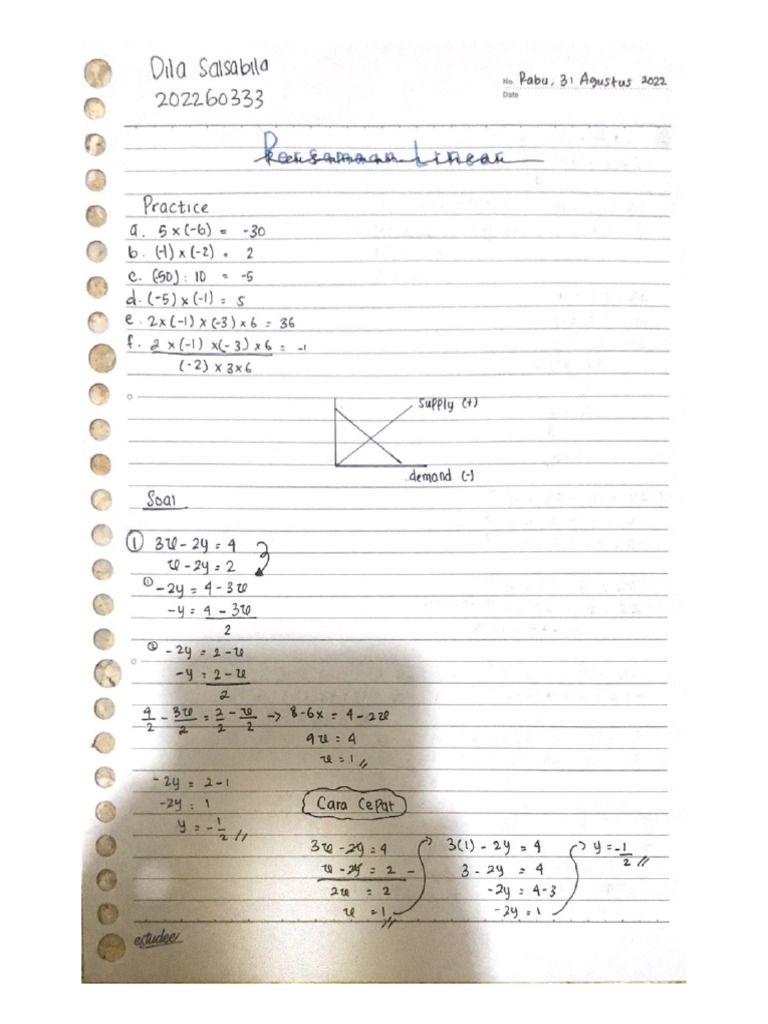 Dila Salsabila
202260333
No. Rabu, 31 Agustus 2022
Date
Persamaan Linear
Practice
a. 5 x (-6) = -30
b. (-1) x (-2) = 2
c. (-50) : 10 = -5
d. (-5) x (-1) = 5
e. 2 x (-1) x (-3) x 6 = 36
f. 2 x (-1) x (-3) x 6 = -1
(-2) x 3 x 6
supply (+)
demand (-)
Soal
① 3x - 2y = 4
x - 2y = 2
① -2y = 4 - 3x
-y = 4 - 3x
2
② -2y = 2 - x
-y = 2 - x
2
4/2 - 3x/2 = 2/2 - x/2 -> 8 - 6x = 4 - 2x
4x = 4
x = 1 //
-2y = 2 - 1
-2y = 1
y = -1/2 //
Cara Cepat
3x - 2y = 4
x - 2y = 2 -
2x = 2
x = 1 //
3(1) - 2y = 4
3 - 2y = 4
-2y = 4 - 3
-2y = 1
y = -1/2 //
estudee